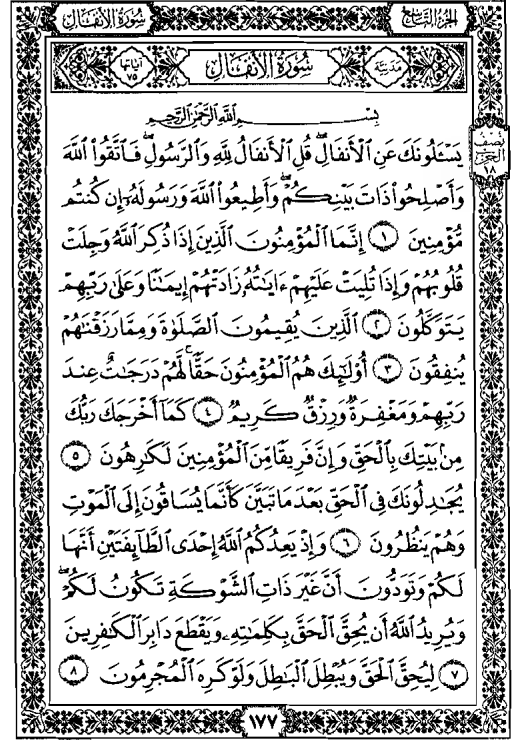 سُورَةُ الأَنفَالِ
الجُزْءُ التَّاسِعُ
آيَاتُهَا ٧٥
سُورَةُ الأَنفَالِ
مَدَنِيَّة
نِصْفُ الحِزْبِ ١٨
بِسْمِ اللَّهِ الرَّحْمَٰنِ الرَّحِيمِ
يَسْـَٔلُونَكَ عَنِ ٱلْأَنفَالِۖ قُلِ ٱلْأَنفَالُ لِلَّهِ وَٱلرَّسُولِۖ فَٱتَّقُوا۟ ٱللَّهَ
وَأَصْلِحُوا۟ ذَاتَ بَيْنِكُمْۖ وَأَطِيعُوا۟ ٱللَّهَ وَرَسُولَهُۥٓ إِن كُنتُم
مُّؤْمِنِينَ ١ إِنَّمَا ٱلْمُؤْمِنُونَ ٱلَّذِينَ إِذَا ذُكِرَ ٱللَّهُ وَجِلَتْ
قُلُوبُهُمْ وَإِذَا تُلِيَتْ عَلَيْهِمْ ءَايَٰتُهُۥ زَادَتْهُمْ إِيمَٰنًا وَعَلَىٰ رَبِّهِمْ
يَتَوَكَّلُونَ ٢ ٱلَّذِينَ يُقِيمُونَ ٱلصَّلَوٰةَ وَمِمَّا رَزَقْنَٰهُمْ
يُنفِقُونَ ٣ أُو۟لَٰٓئِكَ هُمُ ٱلْمُؤْمِنُونَ حَقًّاۚ لَّهُمْ دَرَجَٰتٌ عِندَ
رَبِّهِمْ وَمَغْفِرَةٌ وَرِزْقٌ كَرِيمٌ ٤ كَمَآ أَخْرَجَكَ رَبُّكَ
مِنۢ بَيْتِكَ بِٱلْحَقِّ وَإِنَّ فَرِيقًا مِّنَ ٱلْمُؤْمِنِينَ لَكَٰرِهُونَ ٥
يُجَٰدِلُونَكَ فِى ٱلْحَقِّ بَعْدَمَا تَبَيَّنَ كَأَنَّمَا يُسَاقُونَ إِلَى ٱلْمَوْتِ
وَهُمْ يَنظُرُونَ ٦ وَإِذْ يَعِدُكُمُ ٱللَّهُ إِحْدَى ٱلطَّآئِفَتَيْنِ أَنَّهَا
لَكُمْ وَتَوَدُّونَ أَنَّ غَيْرَ ذَاتِ ٱلشَّوْكَةِ تَكُونُ لَكُمْ
وَيُرِيدُ ٱللَّهُ أَن يُحِقَّ ٱلْحَقَّ بِكَلِمَٰتِهِۦ وَيَقْطَعَ دَابِرَ ٱلْكَٰفِرِينَ
٧ لِيُحِقَّ ٱلْحَقَّ وَيُبْطِلَ ٱلْبَٰطِلَ وَلَوْ كَرِهَ ٱلْمُجْرِمُونَ ٨
١٧٧